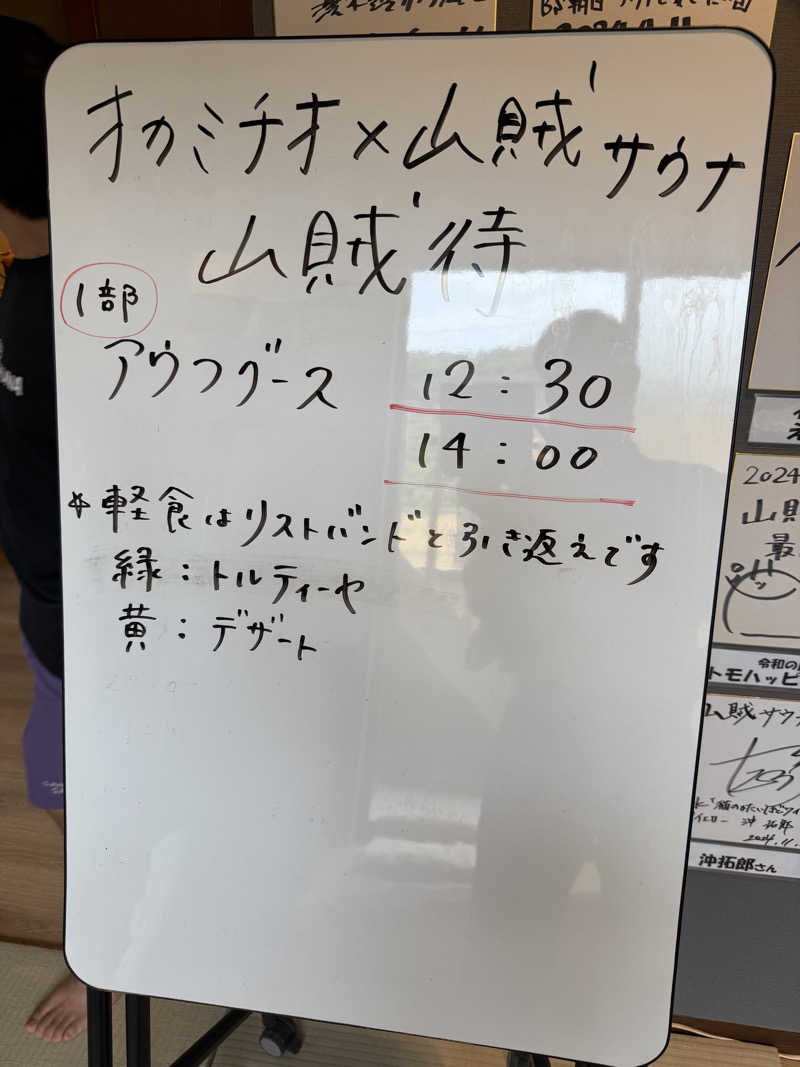 オカミチオ×山賊サウナ
山賊待
1部
アウフグース 12:30
14:00
☆軽食はリストバンドと引き返えです
緑:トルティーヤ
黄:デザート
2024
山賊
最
令和の
トモハッピ
山賊サウナ
沖拓郎
2024.11.
沖拓郎さん